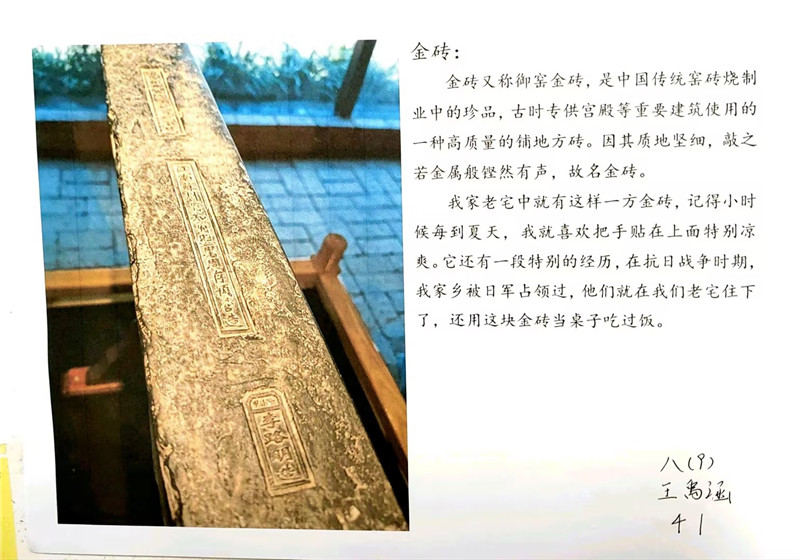 金砖：
金砖又称御窑金砖，是中国传统窑砖烧制
业中的珍品，古时专供宫殿等重要建筑使用的
一种高质量的铺地方砖。因其质地坚细，敲之
若金属般铿然有声，故名金砖。
我家老宅中就有这样一方金砖，记得小时
候每到夏天，我就喜欢把手贴在上面特别凉
爽。它还有一段特别的经历，在抗日战争时期，
我家乡被日军占领过，他们就在我们老宅住下
了，还用这块金砖当桌子吃过饭。
八(9)
王禹涵
41